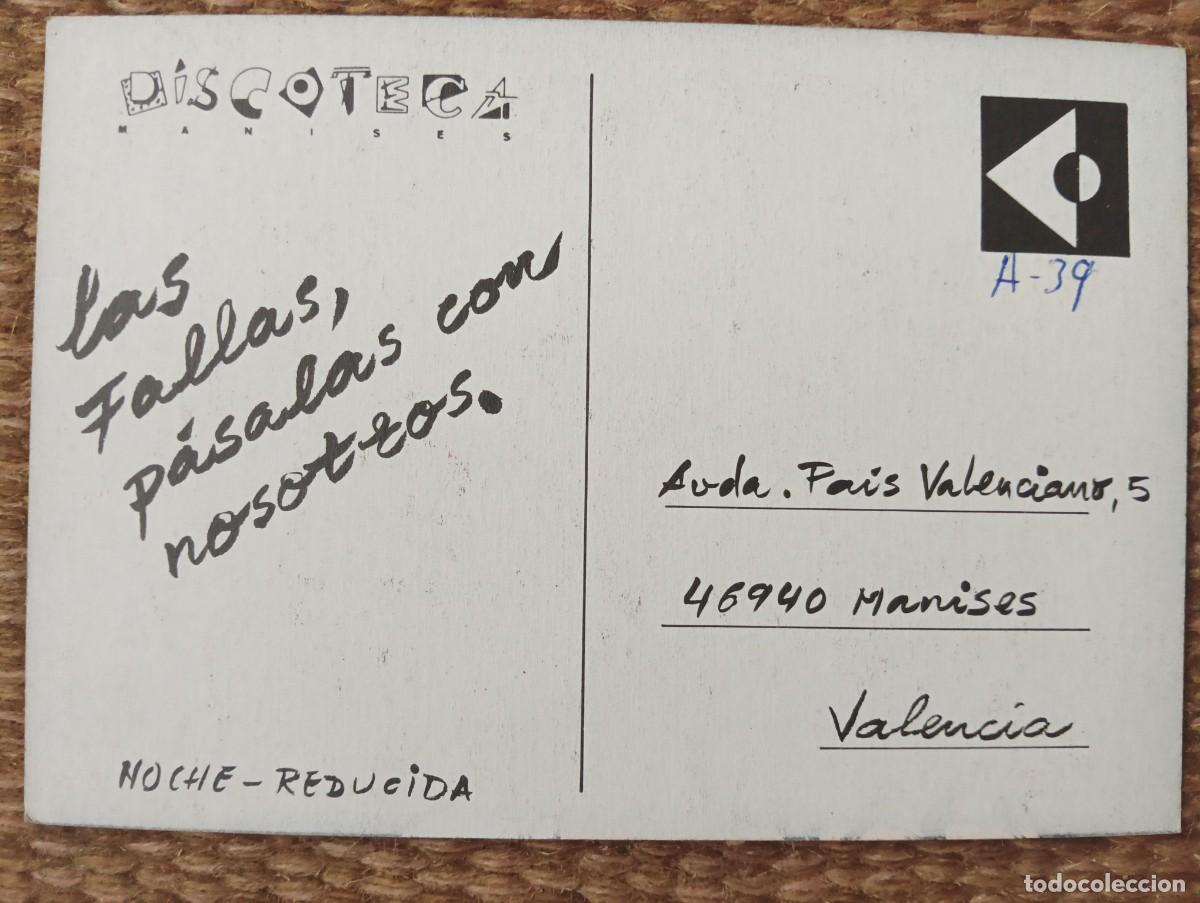 DiSCOTECA
MANISES
las
Fallas,
pásalas con
nosotros.
NOCHE - REDUCiDA
A-39
Avda. Pais Valenciano, 5
46940 Manises
Valencia
todocoleccion